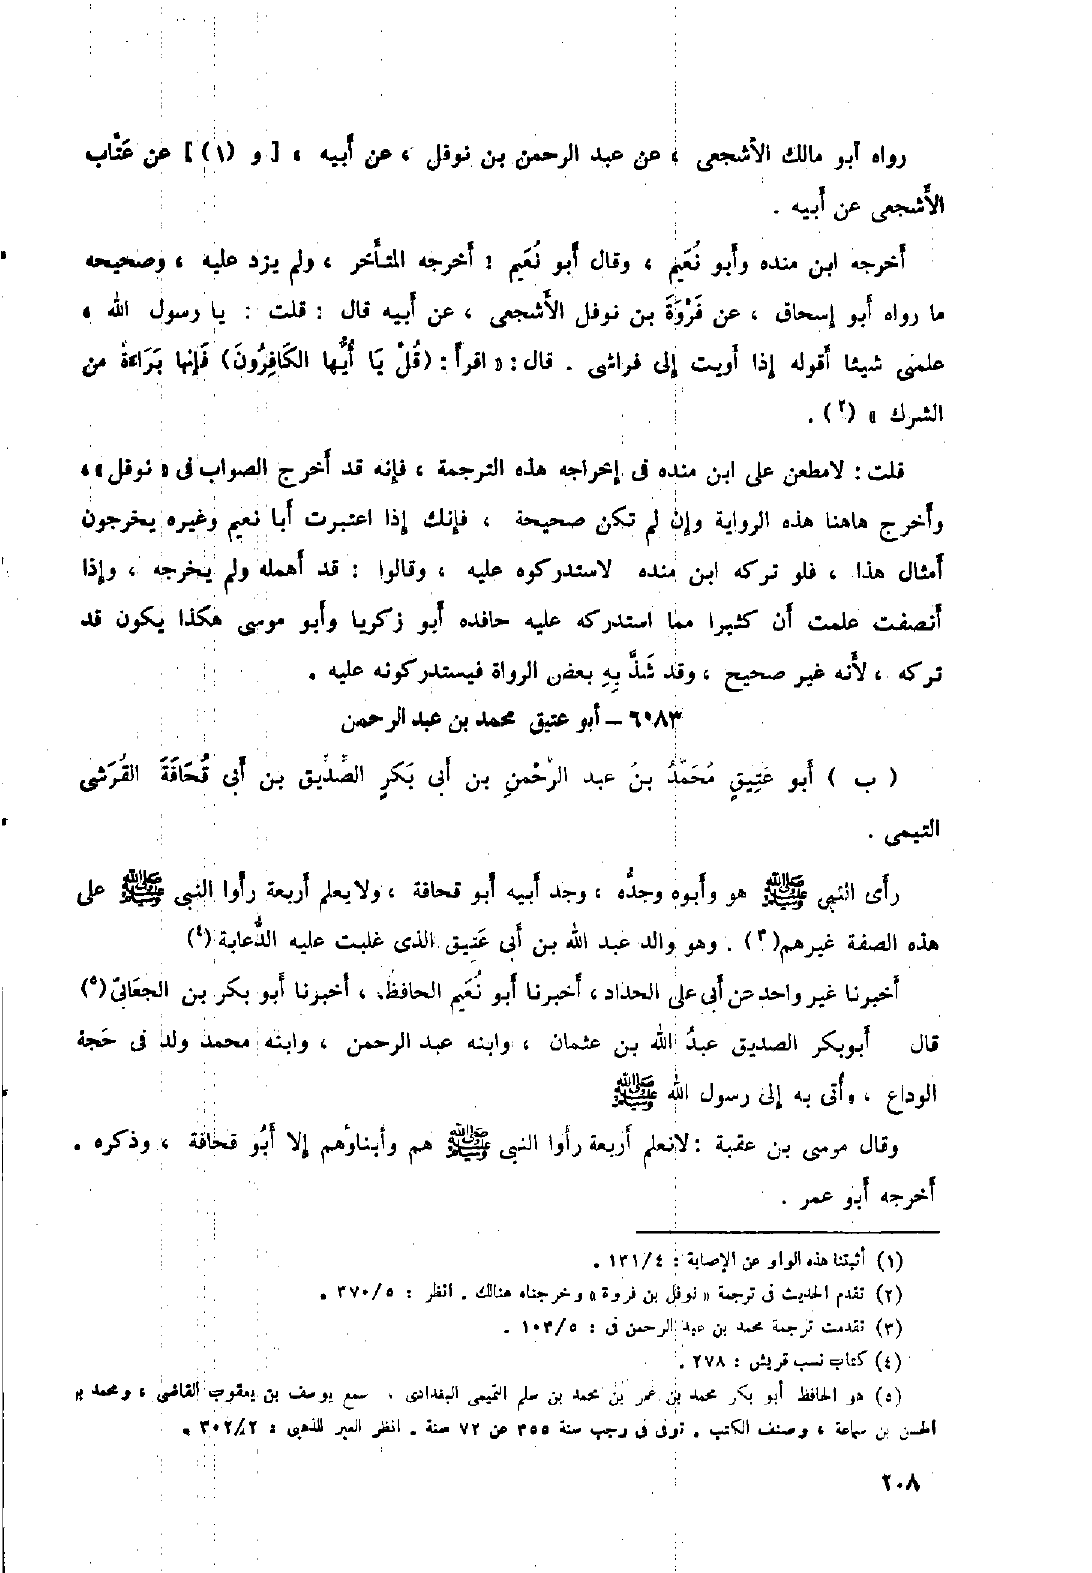 رواه أبو مالك الأشجعى ، عن عبد الرحمن بن نوفل ، عن أبيه ، [ و (١) ] عن عَتَّاب
الأَشجعى عن أَبيه .
أَخرجه ابن منده وأَبو نُعَيم ، وقال أَبو نُعَيم : أَخرجه المتأَخر ، ولم يزد عليه ، وصحيحه
ما رواه أَبو إسحاق ، عن فَرْوَةَ بن نوفل الأَشجعى ، عن أَبيه قال : قلت : يا رسول الله ،
علمنى شيئا أقوله إذا أويت إلى فراشى . قال : « اقرأ : (قُلْ يَا أَيُّها الكَافِرُونَ) فَإنها بَرَاءة من
الشرك » (٢) .
قلت : لا مطعن على ابن منده فى إخراجه هذه الترجمة ، فإنه قد أَخرج الصواب فى « نوفل » ،
وأَخرج هاهنا هذه الرواية وإن لم تكن صحيحة ، فإنك إذا اعتبرت أَبا نعيم وغيره يخرجون
أَمثال هذا ، فلو تركه ابن منده لاستدركوه عليه ، وقالوا : قد أَهمله ولم يخرجه ، وإذا
أَنصفت علمت أَن كثيرا مما استدركه عليه حافده أَبو زكريا وأَبو موسى هكذا يكون قد
تركه ، لأَنه غير صحيح ، وقد شَذَّ بِهِ بعض الرواة فيستدركونه عليه .
٦٠٨٣ – أبو عتيق محمد بن عبد الرحمن
( ب ) أَبو عَتِيقٍ مُحَمَّدُ بنُ عبد الرَّحْمنِ بن أَبى بَكرٍ الصِّدِّيق بن أَبى قُحَافَةَ القُرَشى
التيمى .
رأَى النبى ﷺ هو وأَبوه وجدُّه ، وجد أَبيه أَبو قحافة ، ولا يعلم أَربعة رأَوا النبى ﷺ على
هذه الصفة غيرهم(٣) . وهو والد عبد الله بن أَبى عَتِيق الذى غلبت عليه الدُّعابة (٤)
أَخبرنا غير واحد عن أَبى على الحداد ، أَخبرنا أَبو نُعَيم الحافظ ، أَخبرنا أَبو بكر بن الجعَابىّ (٥)
قال أَبو بكر الصديق عبدُ الله بن عثمان ، وابنه عبد الرحمن ، وابنه محمد ولد فى حَجة
الوداع ، وأُتى به إلى رسول الله ﷺ
وقال موسى بن عقبة : لا نعلم أَربعة رأَوا النبى ﷺ هم وأَبناؤهم إلا أَبُو قحافة ، وذكره .
أَخرجه أَبو عمر .
(١) أثبتنا هذه الواو عن الإصابة : ١٣١/٤ .
(٢) تقدم الحديث فى ترجمة « نوفل بن فروة » وخرجناه هنالك . انظر : ٣٧٠/٥ .
(٣) تقدمت ترجمة محمد بن عبد الرحمن فى : ١٠٣/٥ .
(٤) كتاب نسب قريش : ٢٧٨ .
(٥) هو الحافظ أبو بكر محمد بن عمر بن محمد بن سلم التميمى البغدادى ، سمع يوسف بن يعقوب القاضى ، ومحمد بن
الحسن بن سماعة ، وصنف الكتب . توفى فى رجب سنة ٣٥٥ عن ٧٢ سنة . انظر العبر للذهبى : ٣٠٢/٢ .
٢٠٨